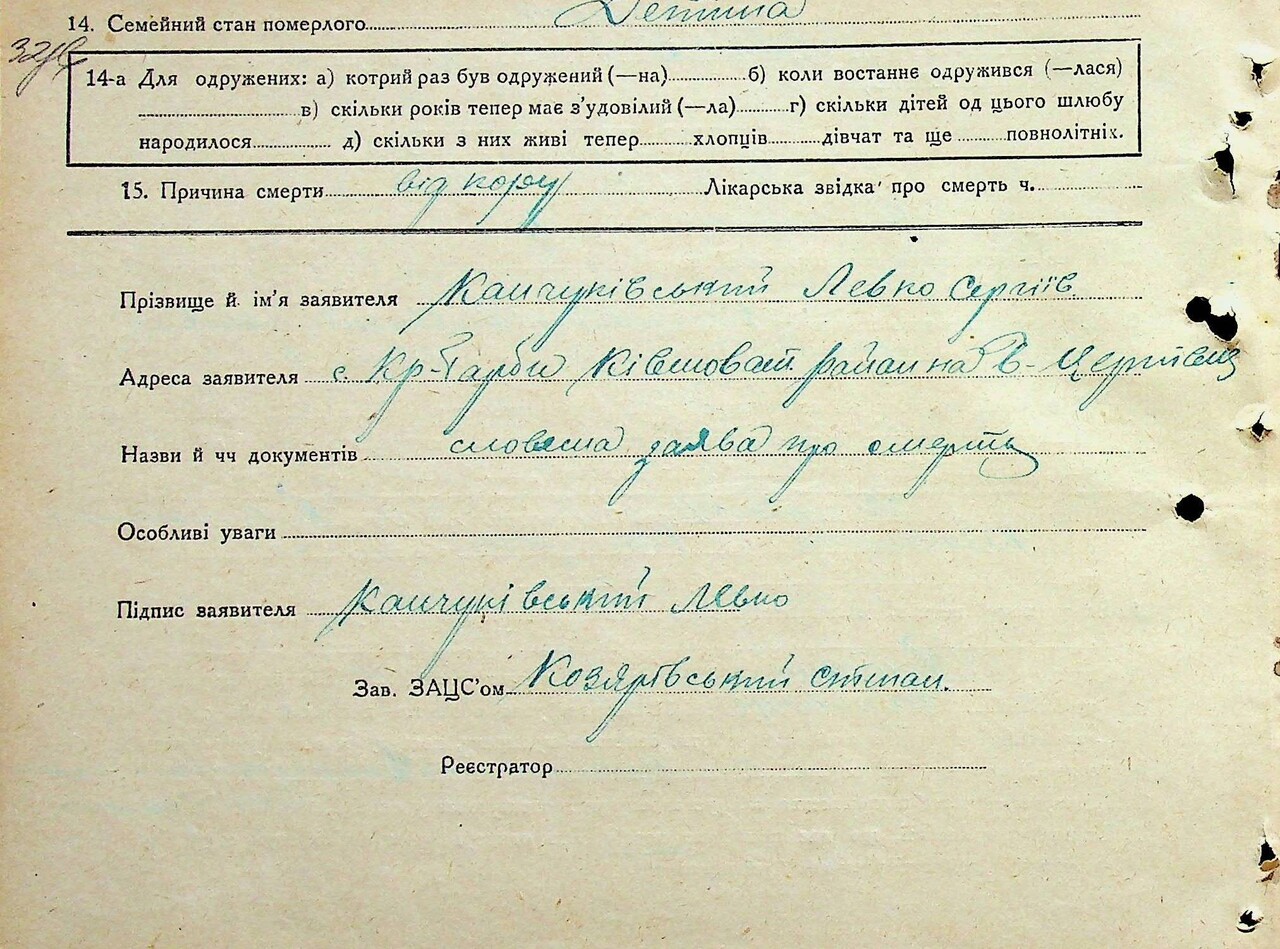 14. Семейний стан померлого Детина
14-а Для одружених: а) котрий раз був одружений (—на) б) коли востаннє одружився (—лася)
в) скільки років тепер має з’удовілий (—ла) г) скільки дітей од цього шлюбу
народилося д) скільки з них живі тепер хлопців дівчат та ще повнолітніх.
15. Причина смерти від кору Лікарська звідка про смерть ч.
Прізвище й ім’я заявителя Канчуківський Левко Сергіїв
Адреса заявителя с. Кр-Гарби район на Б-Церківщ
Назви й чч документів словесна заява про смерть
Особливі уваги
Підпис заявителя Канчуківський Левко
Зав. ЗАЦС’ом Козярівський Степан.
Реєстратор